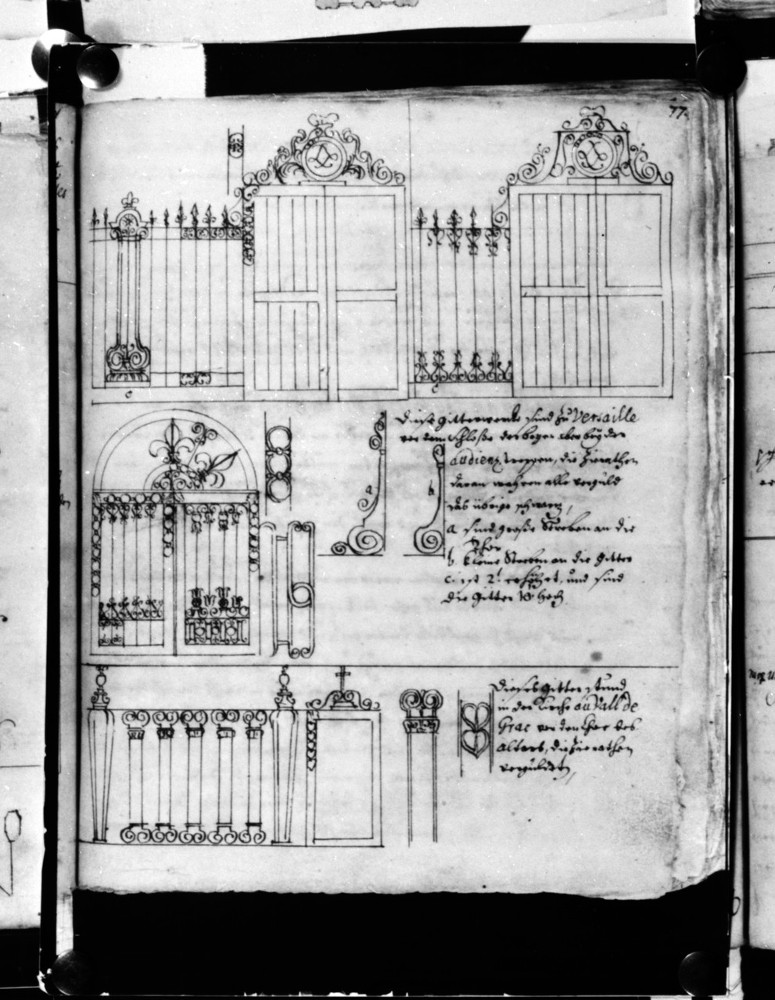 77.
Diese gitterwerke sind zu Versaille
vor dem Schloße der bogen aber bey der
audienz treppen, die Zierathen
daran wahren alle verguld
das übrige schwarz,
a sind große Streben an die
Thor
b kleine Streben an die gitter
c ist 2 erhöhet, und sind
die gitter 10 hoch
a
b
c
c
Dieses gitter stund
in der Kirche au Vall de
Grac vor dem Chor des
altars, die Zierathen
verguldet,